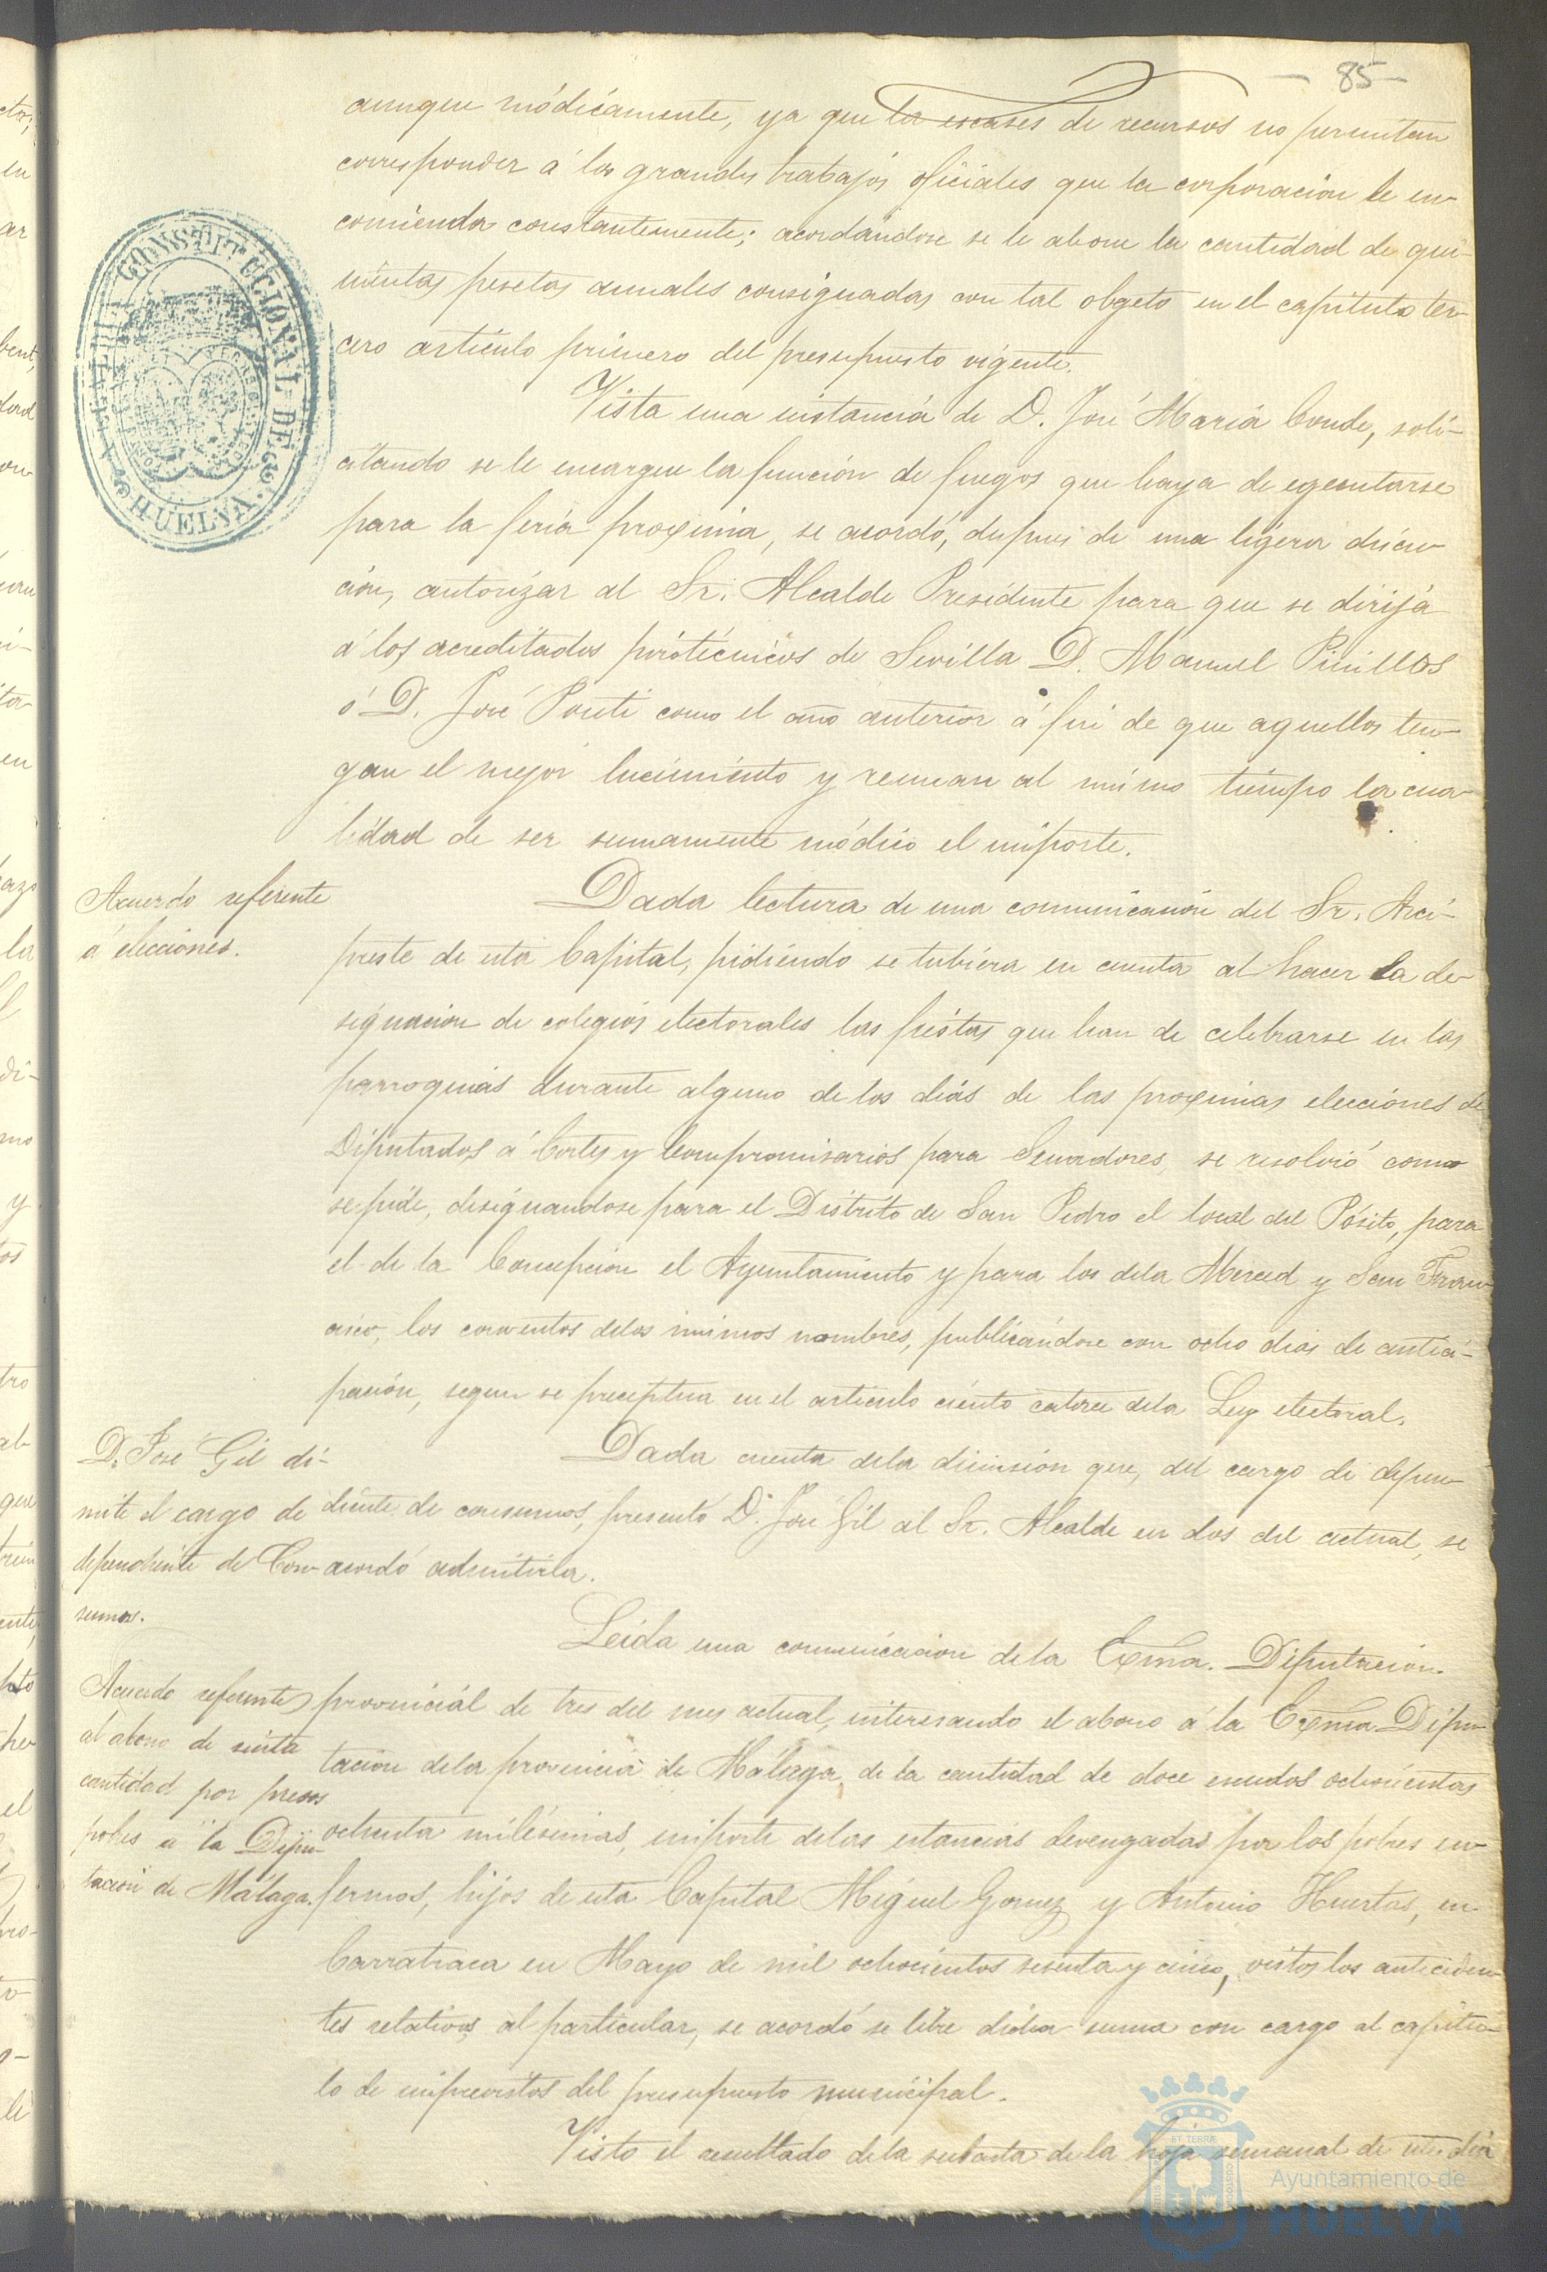 -85-
aunque módicamente, ya que la escases de recursos no permitan
corresponder á los grandes trabajos oficiales que la corporación le en
comienda constantemente; acordándose se le abone la cantidad de qui-
nientas pesetas anuales consignadas con tal objeto en el capítulo ter
cero artículo primero del presupuesto vigente.
CONSTITUCIONAL DE
HUELVA
Vista una instancia de D. José María Conde, soli-
citando se le encargue la función de fuegos que haya de egecutarse
para la feria proxima, se acordó, despues de una ligera discu
ción, autorizar al Sr. Alcalde Presidente para que se dirija
á los acreditados pirotécnicos de Sevilla D. Manuel Pinillos
ó D. José Ponti como el año anterior á fin de que aquellos ten
gan el mejor lucimiento y reunan al mismo tiempo la cua
lidad de ser sumamente módico el importe.
Acuerdo referente
á elecciones.
Dada lectura de una comunicación del Sr. Arci-
preste de esta Capital, pidiendo se tubiera en cuenta al hacer la de
signación de colegios electorales las fiestas que han de celebrarse en las
parroquias durante alguno de los dias de las proximas elecciones de
Diputados á Cortes y Compromisarios para Senadores, se resolvió como
se pide, designandose para el Distrito de San Pedro el local del Pósito, para
el de la Concepción el Ayuntamiento y para los dela Merced y San Fran
cisco, los conventos delos mismos nombres, publicándose con ocho dias de antici-
pación, segun se preceptua en el articulo ciento catorce dela Ley electoral.
D. José Gil di-
mite el cargo de
dependiente de Con-
sumos.
Dada cuenta dela dimisión que, del cargo de depen
diente de consumos, presentó D. José Gil al Sr. Alcalde en dos del actual, se
acordó admitirla.
Leida una comunicación de la Exma. Diputación
Acuerdo referente
al abono de cierta
cantidad por presos
pobres á la Dipu-
tación de Málaga.
provincial de tres del mes actual, interesando el abono á la Exma Dipu
tación dela provincia de Málaga, de la cantidad de doce escudos ochocientas
ochenta milésimas, importe delas estancias devengadas por los pobres en
fermos, hijos de esta Capital Miguel Gomez y Antonio Huertas, en
Carratraca en Mayo de mil ochocientos sesenta y cinco, vistos los anteceden
tes relativos al particular, se acordó se libre dicha suma con cargo al capítu-
lo de imprevistos del presupuesto municipal.
Visto el resultado dela subasta de la hoja semanal de este dia
Ayuntamiento de
HUELVA